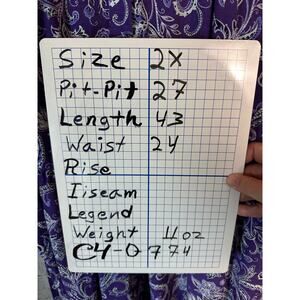 Size 2X
Pit-Pit 27
Length 43
Waist 24
Rise
Iiseam
Legend
Weight 11oz
C4-0774